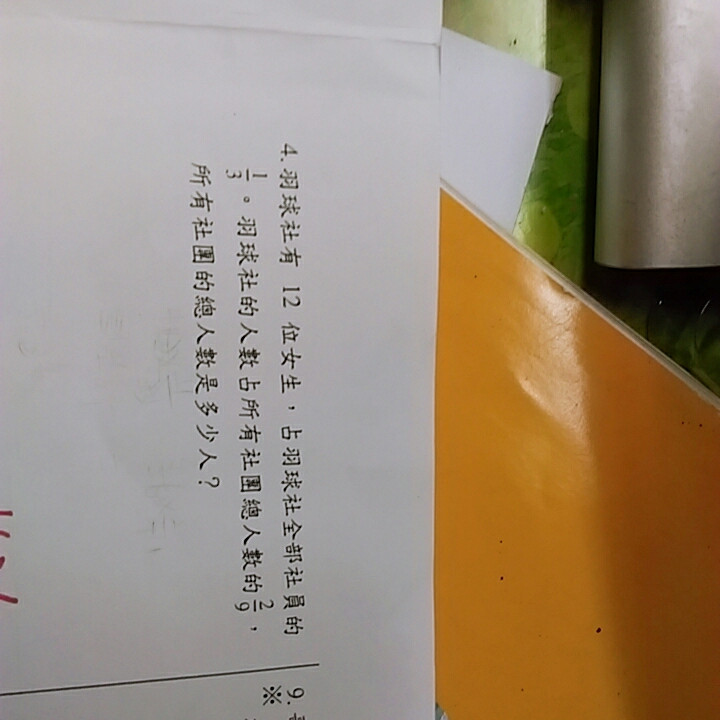 4. 羽球社有 12 位女生，占羽球社全部社員的
1/3。羽球社的人數占所有社團總人數的2/9，
所有社團的總人數是多少人？
9.
※